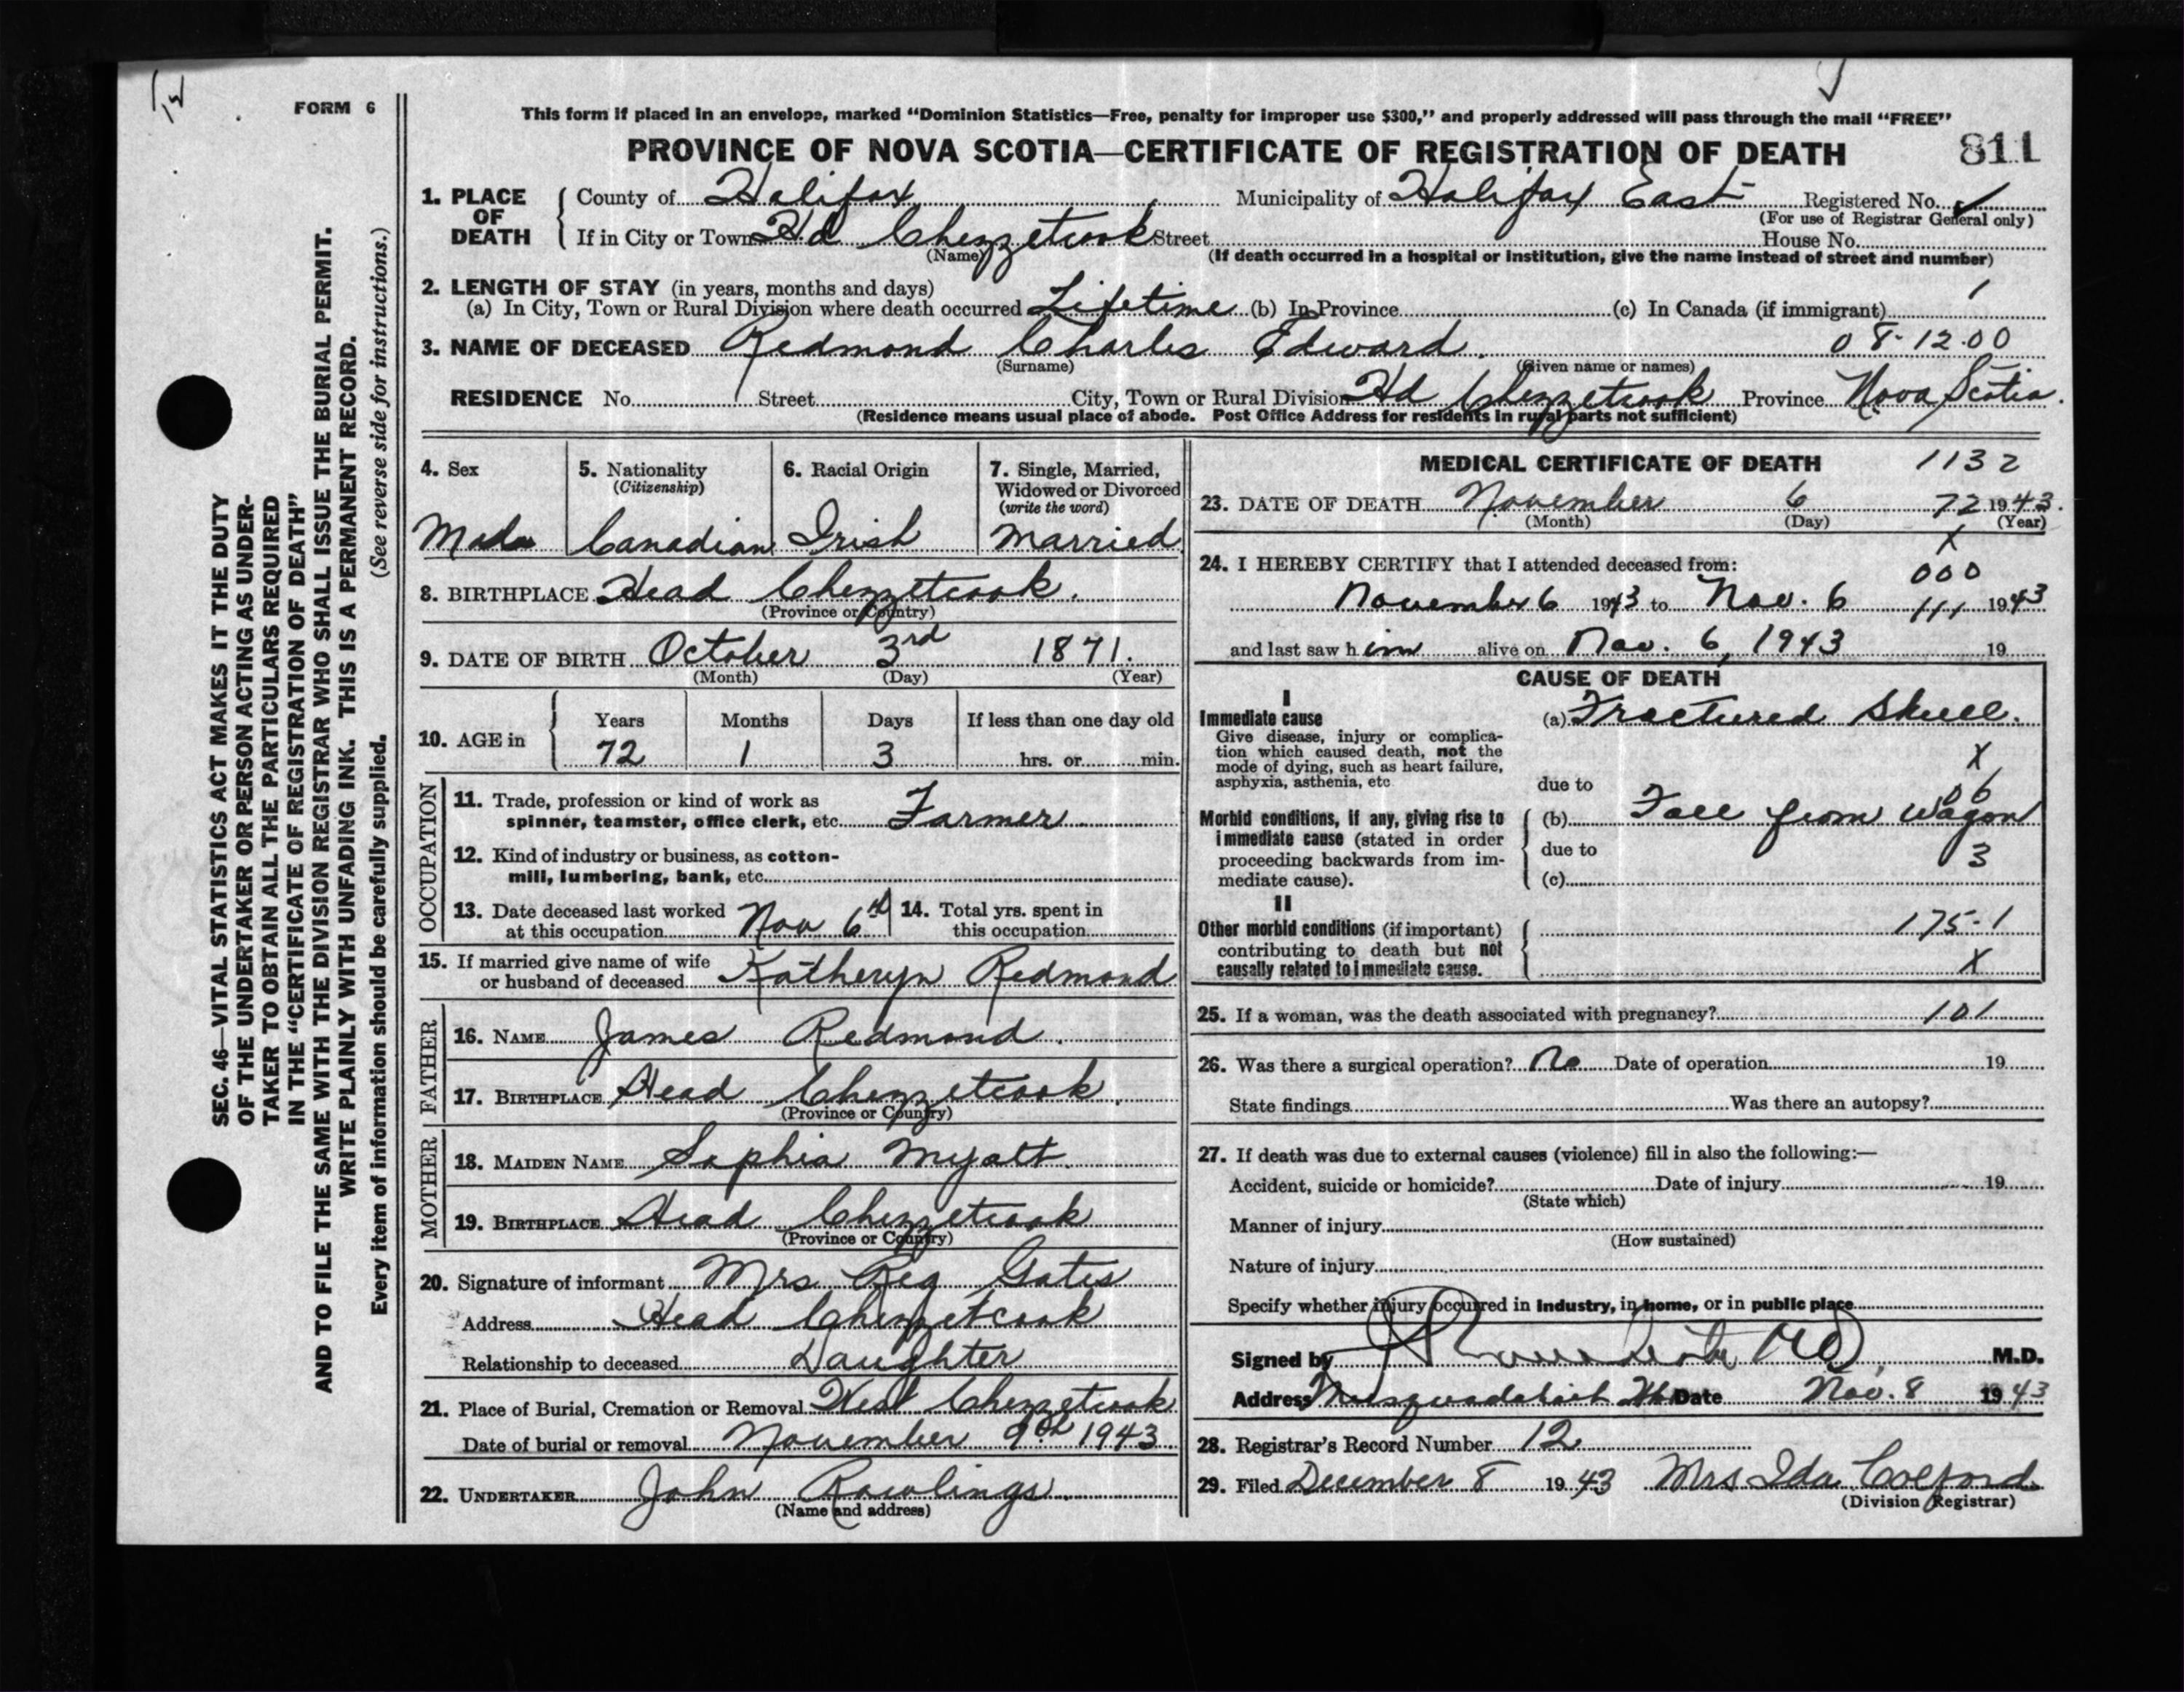 FORM 6
This form if placed in an envelope, marked "Dominion Statistics—Free, penalty for improper use $300," and properly addressed will pass through the mail "FREE"
PROVINCE OF NOVA SCOTIA—CERTIFICATE OF REGISTRATION OF DEATH 811
1. PLACE OF DEATH
County of Halifax Municipality of Halifax East Registered No.
(For use of Registrar General only)
If in City or Town Hd Chezzetcook Street House No.
(Name)
(If death occurred in a hospital or institution, give the name instead of street and number)
2. LENGTH OF STAY (in years, months and days)
(a) In City, Town or Rural Division where death occurred Lifetime (b) In Province (c) In Canada (if immigrant)
3. NAME OF DECEASED Redmond Charles Edward. 08-12.00
(Surname) (Given name or names)
RESIDENCE No. Street City, Town or Rural Division Hd Chezzetcook Province Nova Scotia.
(Residence means usual place of abode. Post Office Address for residents in rural parts not sufficient)
4. Sex
Male
5. Nationality
(Citizenship)
Canadian
6. Racial Origin
Irish
7. Single, Married,
Widowed or Divorced
(write the word)
Married
8. BIRTHPLACE Head Chezzetcook.
(Province or Country)
9. DATE OF BIRTH October 3rd 1871.
(Month) (Day) (Year)
10. AGE in
Years Months Days If less than one day old
72 1 3 hrs. or min.
OCCUPATION
11. Trade, profession or kind of work as
spinner, teamster, office clerk, etc. Farmer
12. Kind of industry or business, as cotton-
mill, lumbering, bank, etc.
13. Date deceased last worked
at this occupation Nov 6th
14. Total yrs. spent in
this occupation
15. If married give name of wife
or husband of deceased Katheryn Redmond
FATHER
16. NAME James Redmond.
17. BIRTHPLACE Head Chezzetcook.
(Province or Country)
MOTHER
18. MAIDEN NAME Sophia Myatt.
19. BIRTHPLACE Head Chezzetcook
(Province or Country)
20. Signature of informant Mrs Reg Gates
Address Head Chezzetcook
Relationship to deceased Daughter
21. Place of Burial, Cremation or Removal West Chezzetcook
Date of burial or removal November 9th 1943
22. UNDERTAKER John Rawlings.
(Name and address)
MEDICAL CERTIFICATE OF DEATH 1132
23. DATE OF DEATH November 6 72 1943.
(Month) (Day) (Year)
X
24. I HEREBY CERTIFY that I attended deceased from:
000
November 6 1943 to Nov. 6 111 1943
and last saw him alive on Nov. 6, 1943 19
CAUSE OF DEATH
I
Immediate cause
Give disease, injury or complica-
tion which caused death, not the
mode of dying, such as heart failure,
asphyxia, asthenia, etc
(a) Fractured Skull.
X
due to
06
Morbid conditions, if any, giving rise to
immediate cause (stated in order
proceeding backwards from im-
mediate cause).
(b) Fall from Wagon
due to
3
(c)
II
Other morbid conditions (if important)
contributing to death but not
causally related to immediate cause.
175-1
X
25. If a woman, was the death associated with pregnancy? 101
26. Was there a surgical operation? No Date of operation 19
State findings Was there an autopsy?
27. If death was due to external causes (violence) fill in also the following:—
Accident, suicide or homicide? Date of injury 19
(State which)
Manner of injury
(How sustained)
Nature of injury
Specify whether injury occurred in industry, in home, or in public place
Signed by M.D.
Address Musquodoboit Hb Date Nov. 8 1943
28. Registrar's Record Number 12
29. Filed December 8 1943 Mrs Ida Colford
(Division Registrar)
SEC. 46—VITAL STATISTICS ACT MAKES IT THE DUTY
OF THE UNDERTAKER OR PERSON ACTING AS UNDER-
TAKER TO OBTAIN ALL THE PARTICULARS REQUIRED
IN THE "CERTIFICATE OF REGISTRATION OF DEATH"
AND TO FILE THE SAME WITH THE DIVISION REGISTRAR WHO SHALL ISSUE THE BURIAL PERMIT.
WRITE PLAINLY WITH UNFADING INK. THIS IS A PERMANENT RECORD.
Every item of information should be carefully supplied. (See reverse side for instructions.)